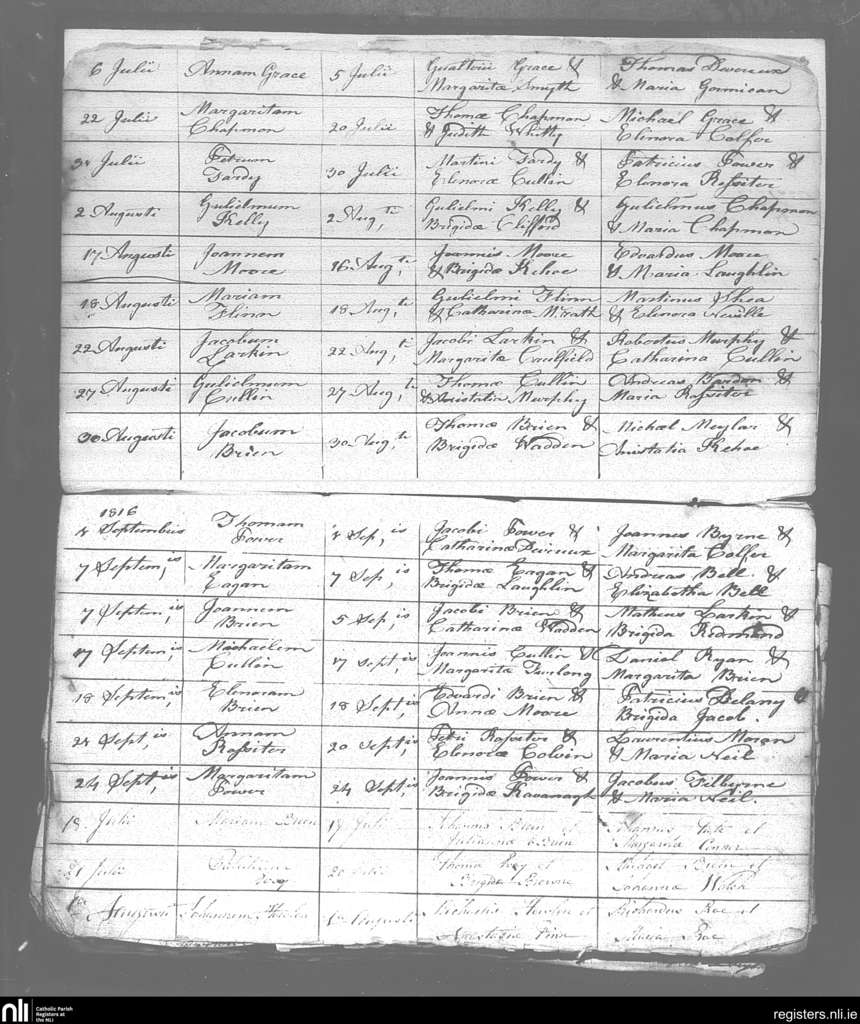 6 Julii Annam Grace 5 Julii Gualterii Grace & Thomas Devereux
Margaritæ Smyth & Maria Gormican
22 Julii Margaritam 20 Julii Thomæ Chapman Michael Grace &
Chapman & Judith Whitty Elinora Colfer
Julii Petrum 30 Julii Martini Tardy & Patricius Power &
Tardy Elenoræ Cullin Elenora Rossiter
2 Augusti Gulielmum 2 Aug,ti Gulielmi Kelly & Gulielmus Chapman
Kelly Brigidæ Clifford & Maria Chapman
17 Augusti Joannem 16 Aug,ti Joannis Moore Edvardus Moore
Moore & Brigidæ Kehoe & Maria Laughlin
18 Augusti Mariam 18 Aug,ti Gulielmi Flinn Martinus Shea
Flinn & Catharinæ McGrath & Elenora Neville
22 Augusti Jacobum 22 Aug,ti Jacobi Larkin & Robertus Murphy &
Larkin Margaritæ Caulfield Catharina Cullin
27 Augusti Gulielmum 27 Aug,ti Thomæ Cullin Andreas &
Cullin & Anistatiæ Murphy Maria Rossiter
30 Augusti Jacobum 30 Aug,ti Thomæ Brien & Michael Meylar &
Brien Brigidæ Wadden Anistatia Kehoe
1816
Septembris Thomam Sep,is Jacobi Power & Joannes Byrne &
Power Catharinæ Devreux Margarita Colfer
7 Septem,is Margaritam 7 Sep,is Thomæ Eagan & Andreas Bell &
Eagan Brigidæ Laughlin Elizabetha Bell
7 Septem,is Joannem 5 Sep,is Jacobi Brien & Matheus Larkin &
Brien Catharinæ Wadden Brigida Redmond
17 Septem,is Michaelem 17 Sept,is Joannis Cullin & Daniel Ryan &
Cullin Margarita Furlong Margarita Brien
18 Septem,is Elenoram 18 Sept,is Edvardi Brien & Patricius Delany &
Brien Annæ Moore Brigida Jacob.
Sept,is Annam 20 Sept,is Petri Rossiter & Laurentius Moran
Rossiter Elenoræ Colvin & Maria Neil
24 Sept,is Margaritam 24 Sept,is Joannis Power & Jacobus Filbyrne
Power Brigidæ Kavanagh & Maria Neil.
18 Julii Mariam Brien 17 Juli Brien et et
Julianna Brien Margarita Connor
21 Julii 20 Julii Thoma et Michael Brien et
Brigida Browne Joanna Walsh
Augusti Johannem Augusti et Richardus Roe et
Anastasia Maria Roe
nli Catholic Parish
Registers at
the NLI
registers.nli.ie